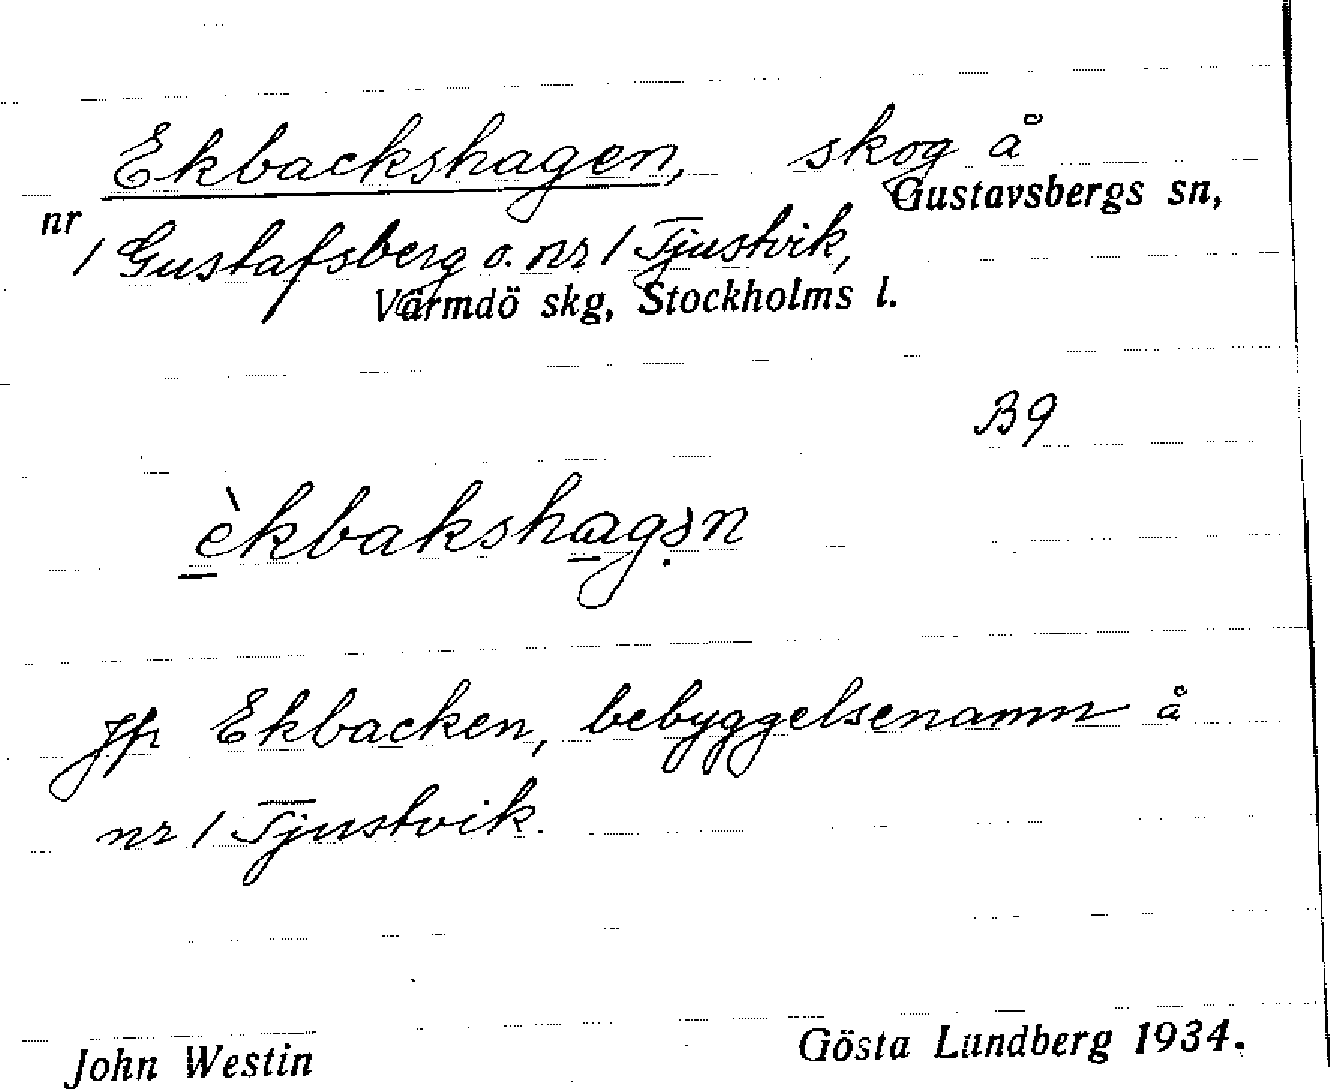 Ekbackshagen, skog å
Gustavsbergs sn,
nr 1 Gustafsberg o. nr 1 Tjustvik,
Värmdö skg, Stockholms l.
B9
èkbakshagən
Jfr Ekbacken, bebyggelsenamn å
nr 1 Tjustvik.
John Westin Gösta Lundberg 1934.